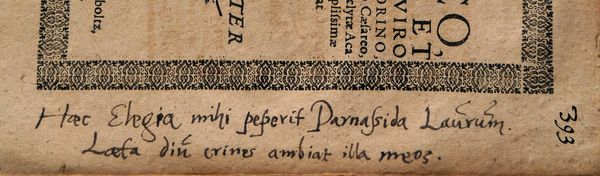 O
ET
VIRO
ORINO,
Cæsareo,
clytæ Aca
plissimæ
at
TER
boltz,
Hæc Elegia mihi peperit Parnassida Laurum.
Læta diu crines ambiat illa meos.
393